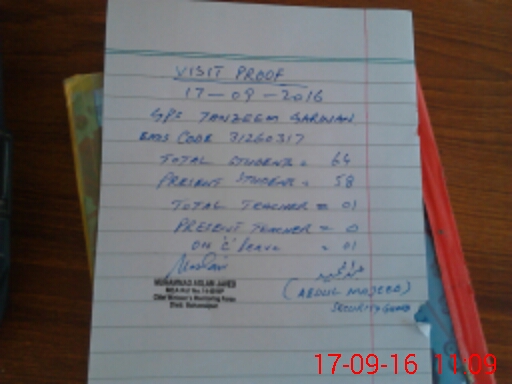 VISIT PROOF
17-09-2016
GPS TANZEEM SARWAR
EMIS CODE 31260317
TOTAL STUDENTS = 64
PRESENT STUDENTS = 58
TOTAL TEACHER = 01
PRESENT TEACHER = 0
ON 'C' LEAVE = 01
MUHAMMAD ASLAM JAVED
Chief Minister's Monitoring Force
Distt. Bahawalpur
(ABDUL MAJEED)
SECURITY GUARD
17-09-16 11:09